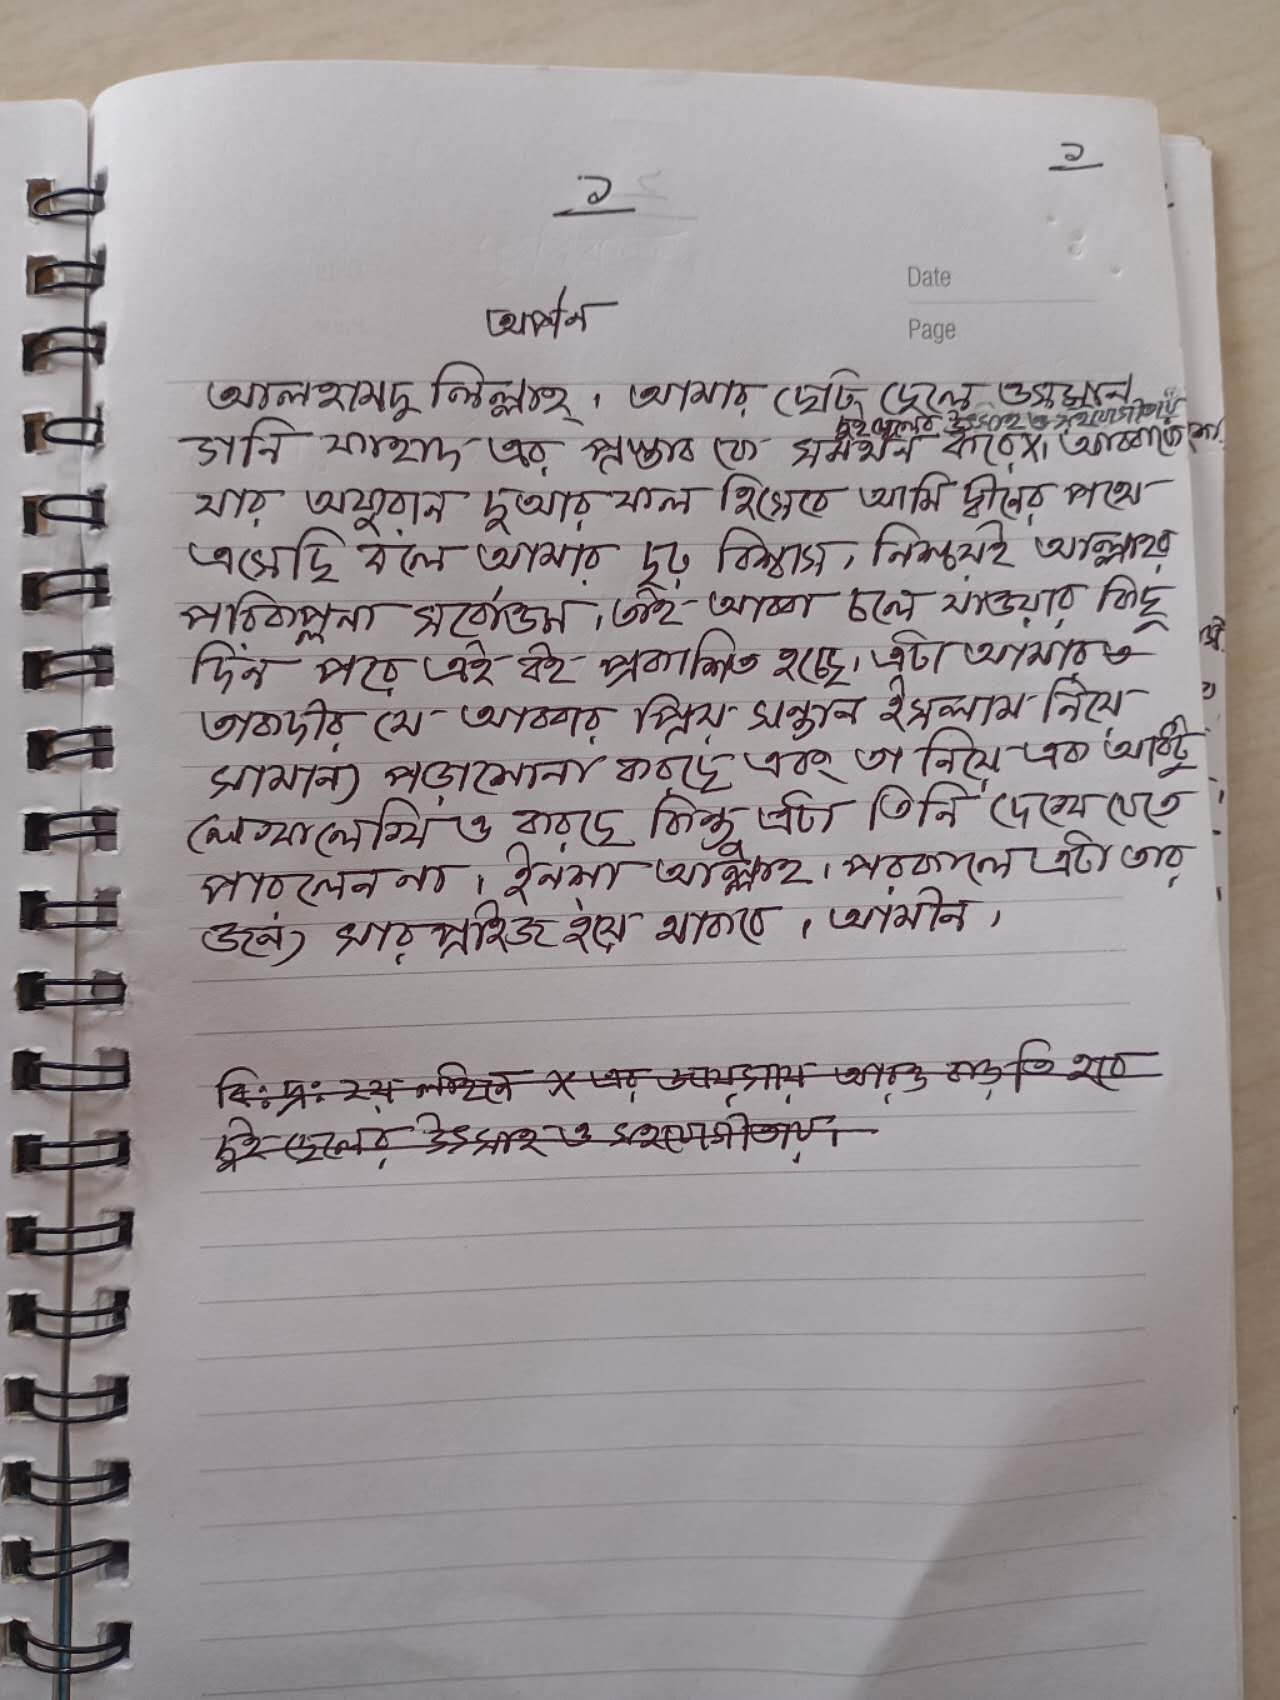 ১
১
Date
Page
অর্পন
আলহামদু লিল্লাহ্। আমার ছোট ছেলে ওসমান
দুই ছেলের উৎসাহ ও সহযোগীতায়
গনি ফাহাদ এর প্রস্তাব কে সমর্থন করে X। আব্বাকে
যার অফুরান দুআর ফল হিসেবে আমি দ্বীনের পথে
এসেছি বলে আমার দৃঢ় বিশ্বাস। নিশ্চয়ই আল্লাহর
পরিকল্পনা সর্বোত্তম। তাই আব্বা চলে যাওয়ার কিছু
দিন পরে এই বই প্রকাশিত হচ্ছে। এটা আমারও
তাকদীর যে আব্বার প্রিয় সন্তান ইসলাম নিয়ে
সামান্য পড়াশোনা করছে এবং তা নিয়ে এক আধটু
লেখালেখিও করছে কিন্তু এটা তিনি দেখে যেতে
পারলেন না। ইনশা আল্লাহ। পরকালে এটা তার
জন্য সারপ্রাইজ হয়ে থাকবে। আমীন।
বি: দ্র: ২য় লাইনে X এর জায়গায় আরও বাড়তি হবে
দুই ছেলের উৎসাহ ও সহযোগীতায়।